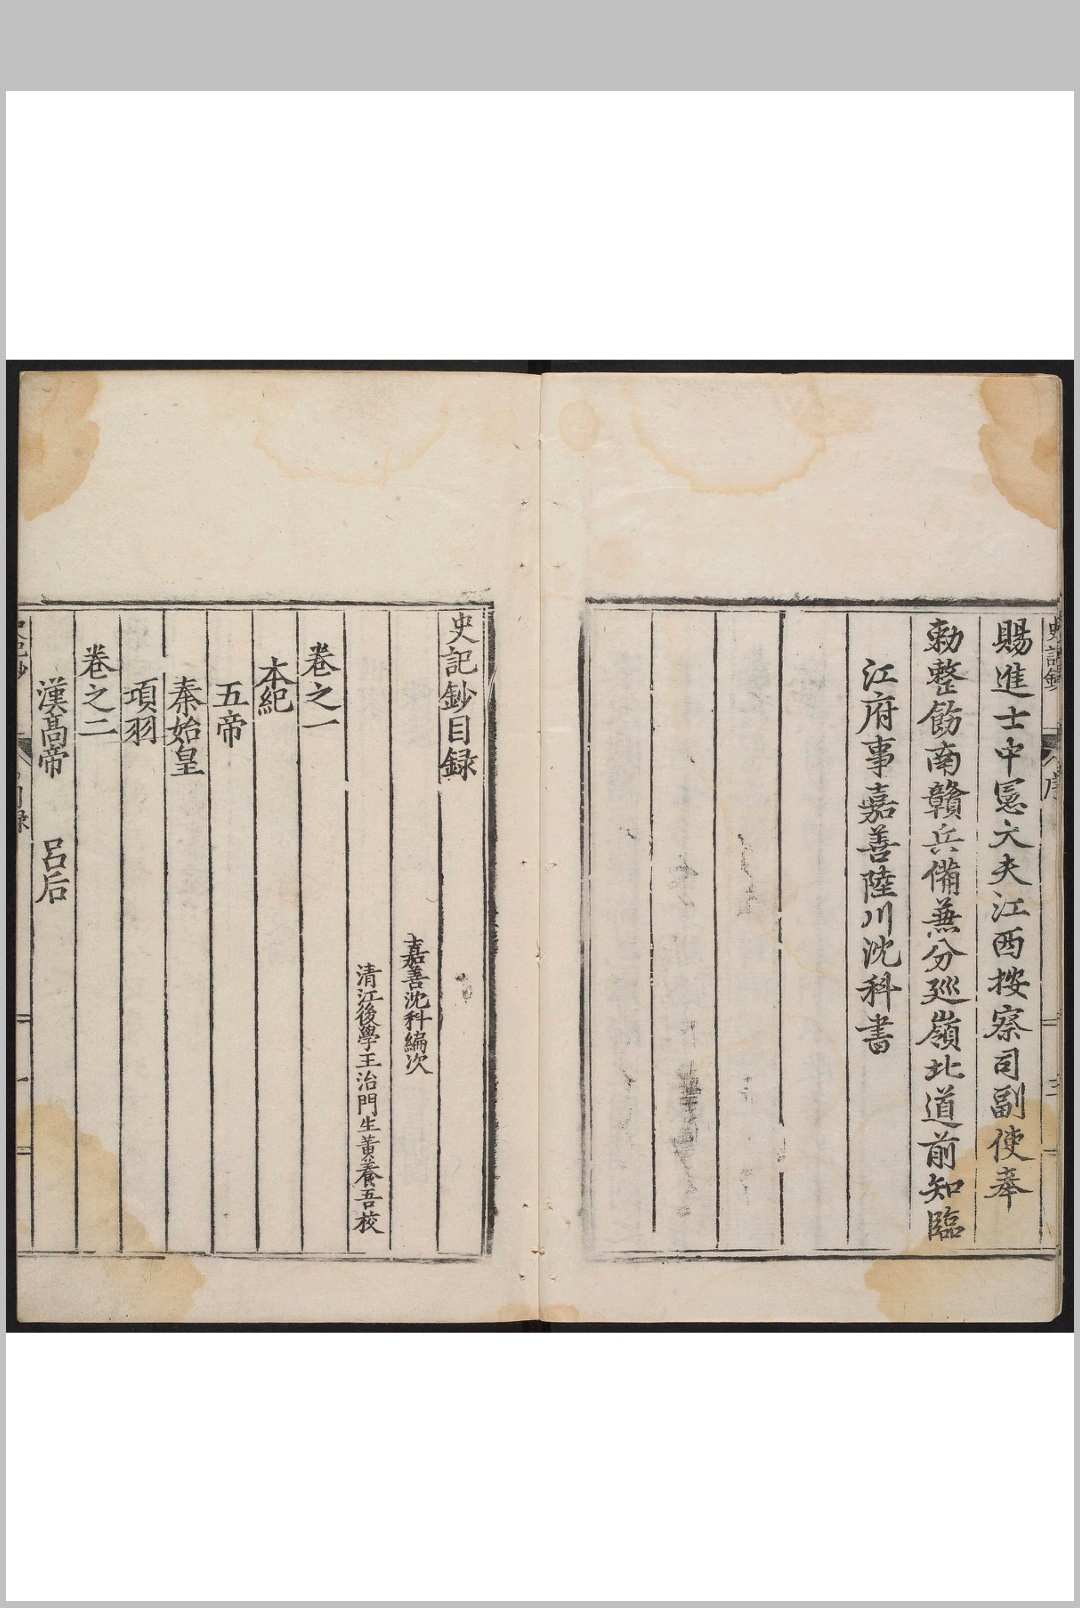 賜進士中憲大夫江西按察司副使奉
勅整飭南贛兵備兼分廵嶺北道前知臨
江府事嘉善陸川沈科書
史記鈔目録
嘉善沈科編次
清江後學王治門生黄養吾校
卷之一
本紀
五帝
秦始皇
項羽
卷之二
漢高帝 呂后